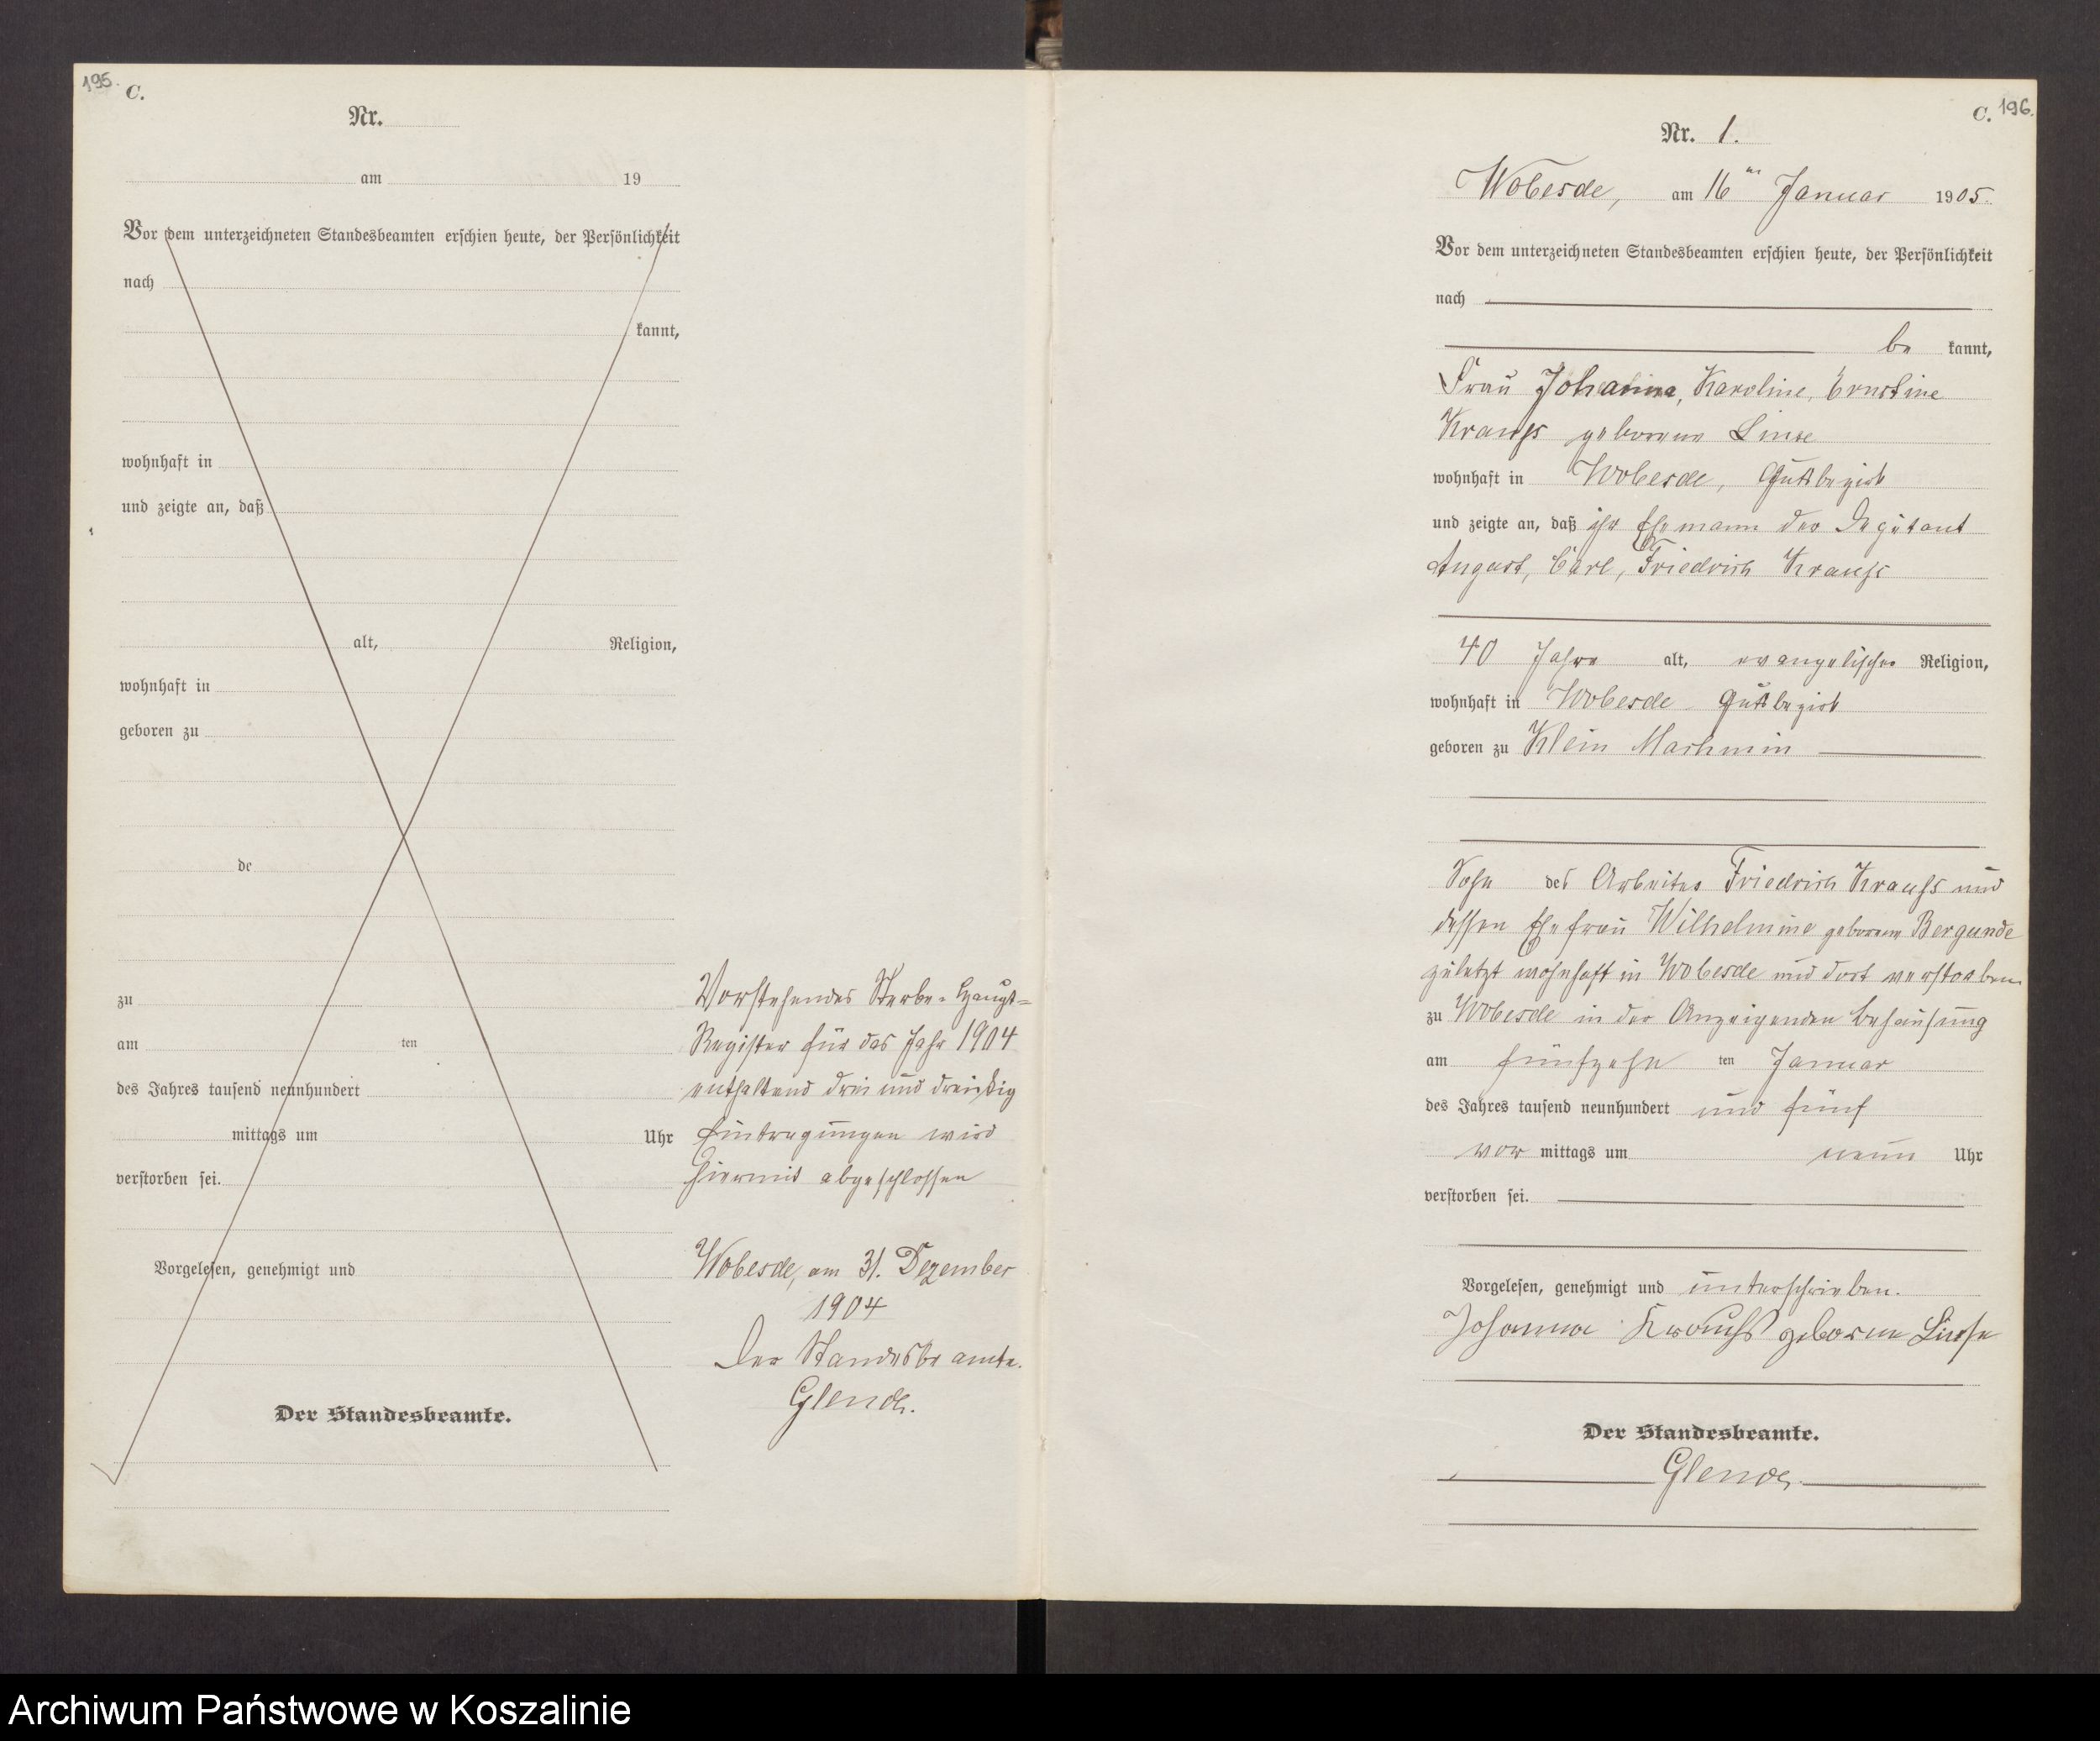 195.
C.
Nr.
am 19
Vor dem unterzeichneten Standesbeamten erschien heute, der Persönlichkeit
nach
kannt,
wohnhaft in
und zeigte an, daß
alt, Religion,
wohnhaft in
geboren zu
de
zu
am ten
des Jahres tausend neunhundert
mittags um Uhr
verstorben sei.
Vorgelesen, genehmigt und
Der Standesbeamte.
Vorstehendes Sterbe-Haupt-
Register für das Jahr 1904
enthaltend drei und dreißig
Eintragungen wird
hiermit abgeschlossen
Wobesde, am 31. Dezember
1904
Der Standesbeamte.
Glende.
C. 196.
Nr. 1.
Wobesde, am 16ten Januar 1905.
Vor dem unterzeichneten Standesbeamten erschien heute, der Persönlichkeit
nach
be kannt,
Frau Johanna, Karoline, Ernstine
Krauss geborene Linse
wohnhaft in Wobesde, Gutsbezirk
und zeigte an, daß ihr Ehemann der Deputant
August, Carl, Friedrich Krauss
40 Jahre alt, evangelischer Religion,
wohnhaft in Wobesde Gutsbezirk
geboren zu Klein Machmin
Sohn des Arbeiters Friedrich Krauss und
dessen Ehefrau Wilhelmine geborene Bergunde
zuletzt wohnhaft in Wobesde und dort verstorben
zu Wobesde in der Anzeigenden Behausung
am fünfzehn ten Januar
des Jahres tausend neunhundert und fünf
vor mittags um neun Uhr
verstorben sei.
Vorgelesen, genehmigt und unterschrieben.
Johanna Krauss geborne Linse
Der Standesbeamte.
Glende.
Archiwum Państwowe w Koszalinie